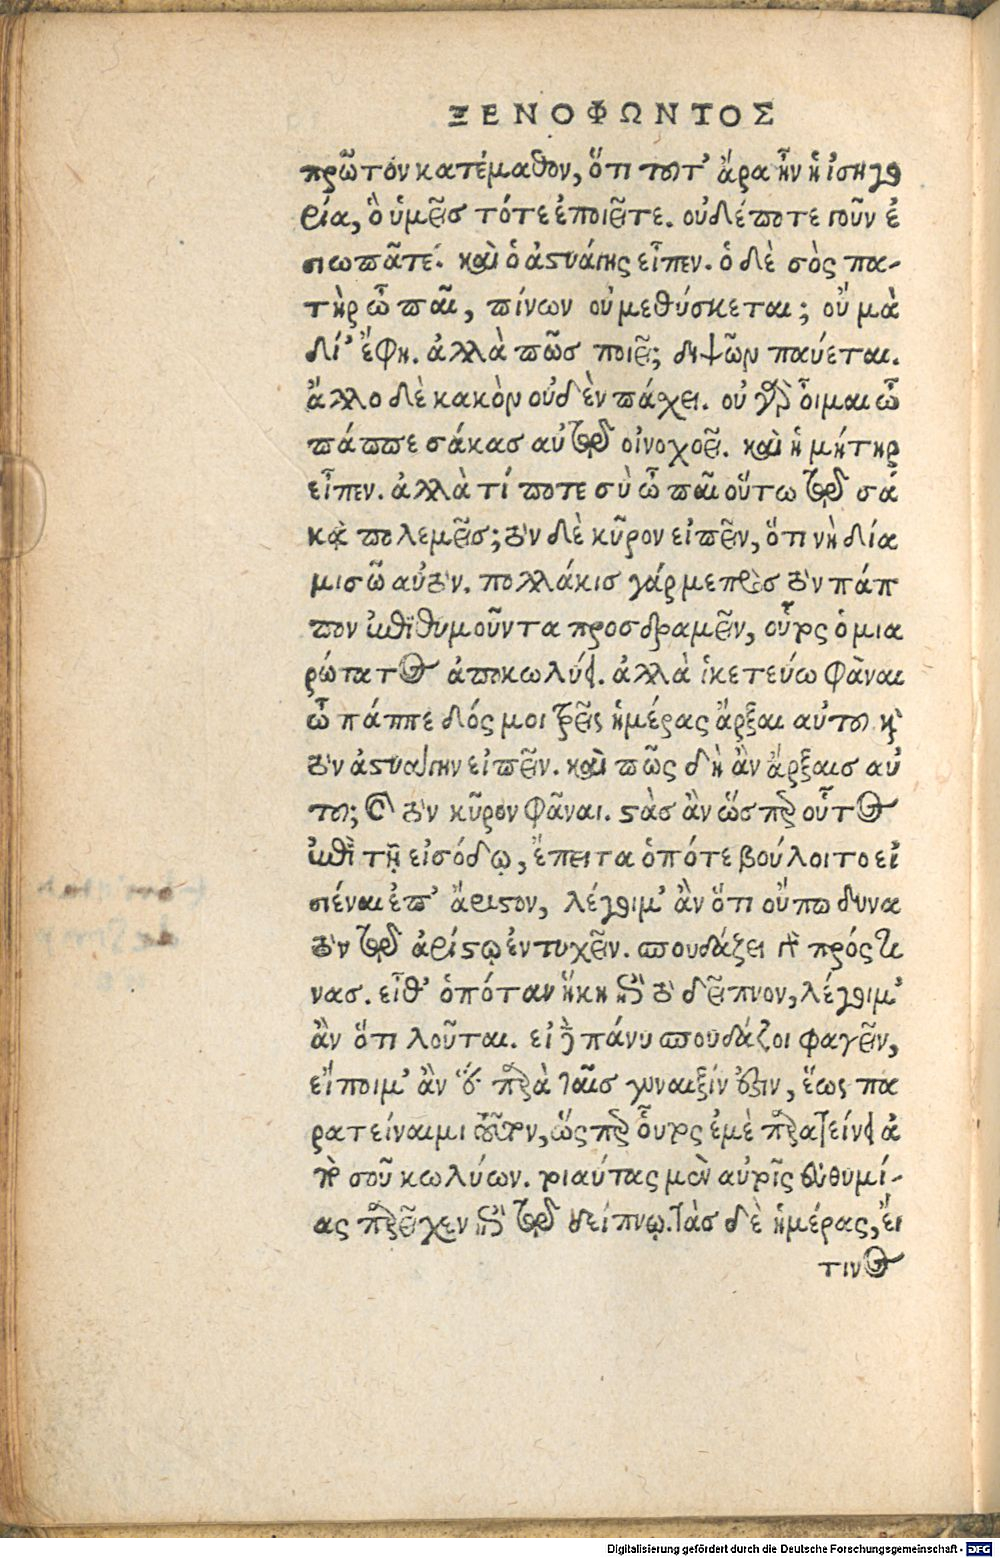 ΞΕΝΟΦΩΝΤΟΣ
πρῶτον κατέμαθον, ὅτι τοῦτ' ἄρα ἦν ἡ ἰσηγο
ρία, ὃ ὑμεῖς τότε ἐποιεῖτε. οὐδέποτε γοῦν ἐ
σιωπᾶτε. καὶ ὁ ἀστυάγης εἶπεν. ὁ δὲ σὸς πα-
τὴρ ὦ παῖ, πίνων οὐ μεθύσκεται; οὔ μὰ
δί' ἔφη. ἀλλὰ πῶς ποιεῖ; διψῶν παύεται.
ἄλλο δὲ κακὸν οὐδὲν πάχει. οὐ γὰρ οἶμαι ὦ
πάππε σάκας αὐτῷ οἰνοχοεῖ. καὶ ἡ μήτηρ
εἶπεν. ἀλλὰ τί ποτε σὺ ὦ παῖ οὕτω τῷ σά
κᾳ πολεμεῖς; τὸν δὲ κῦρον εἰπεῖν, ὅτι νὴ δία
μισῶ αὐτόν. πολλάκις γάρ με πρὸς τὸν πάπ
πον ἐπιθυμοῦντα προσδραμεῖν, οὗτος ὁ μια
ρώτατος ἀποκωλύει. ἀλλὰ ἱκετεύω φάναι
ὦ πάππε δός μοι τρεῖς ἡμέρας ἄρξαι αὐτοῦ καὶ
τὸν ἀστυάγην εἰπεῖν. καὶ πῶς δὴ ἂν ἄρξαις αὐ
τοῦ; καὶ τὸν κῦρον φᾶναι. στὰς ἂν ὥσπερ οὗτος
ἐπὶ τῇ εἰσόδῳ, ἔπειτα ὁπότε βούλοιτο εἰ
σιέναι ἐπ' ἄριστον, λέγοιμ' ἂν ὅτι οὔπω δυνα
τὸν τῷ ἀρίστῳ ἐντυχεῖν. σπουδάζει γὰρ πρός τι
νας. εἶθ' ὁπόταν ἥκῃ ἐπὶ τὸ δεῖπνον, λέγοιμ'
ἂν ὅτι λοῦται. εἰ δὲ πάνυ σπουδάζοι φαγεῖν,
εἴποιμ' ἂν ὅτι παρὰ ταῖς γυναιξίν ἐστιν, ἕως πα
ρατείναιμι τοῦτον, ὥσπερ οὗτος ἐμὲ παρατείνει ἀ
πὸ σοῦ κωλύων. τοιαύτας μὲν αὐτοῖς εὐθυμί-
ας παρεῖχεν ἐπὶ τῷ δείπνῳ. τὰς δὲ ἡμέρας, εἴ
τινος